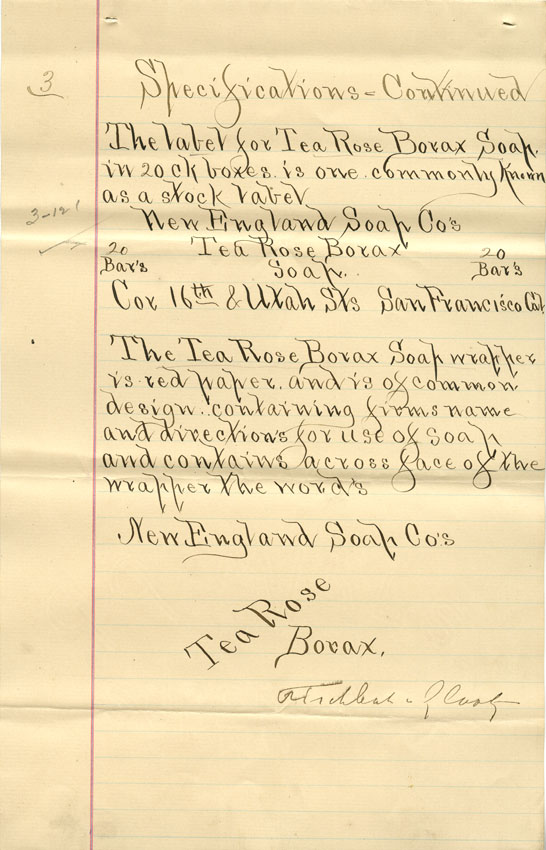 3
Specifications = Continued
The label for Tea Rose Borax Soap.
in 20 ck boxes. is one. commonly known
as a stock label
New England Soap Co's
20 Tea Rose Borax 20
Bar's Soap. Bar's
Cor 16th & Utah Sts San Francisco Cal.
The Tea Rose Borax Soap wrapper
is red paper. and is of common
design. containing firms name
and directions for use of soap
and contains across face of the
wrapper the word's
New England Soap Co's
Tea Rose
Borax.